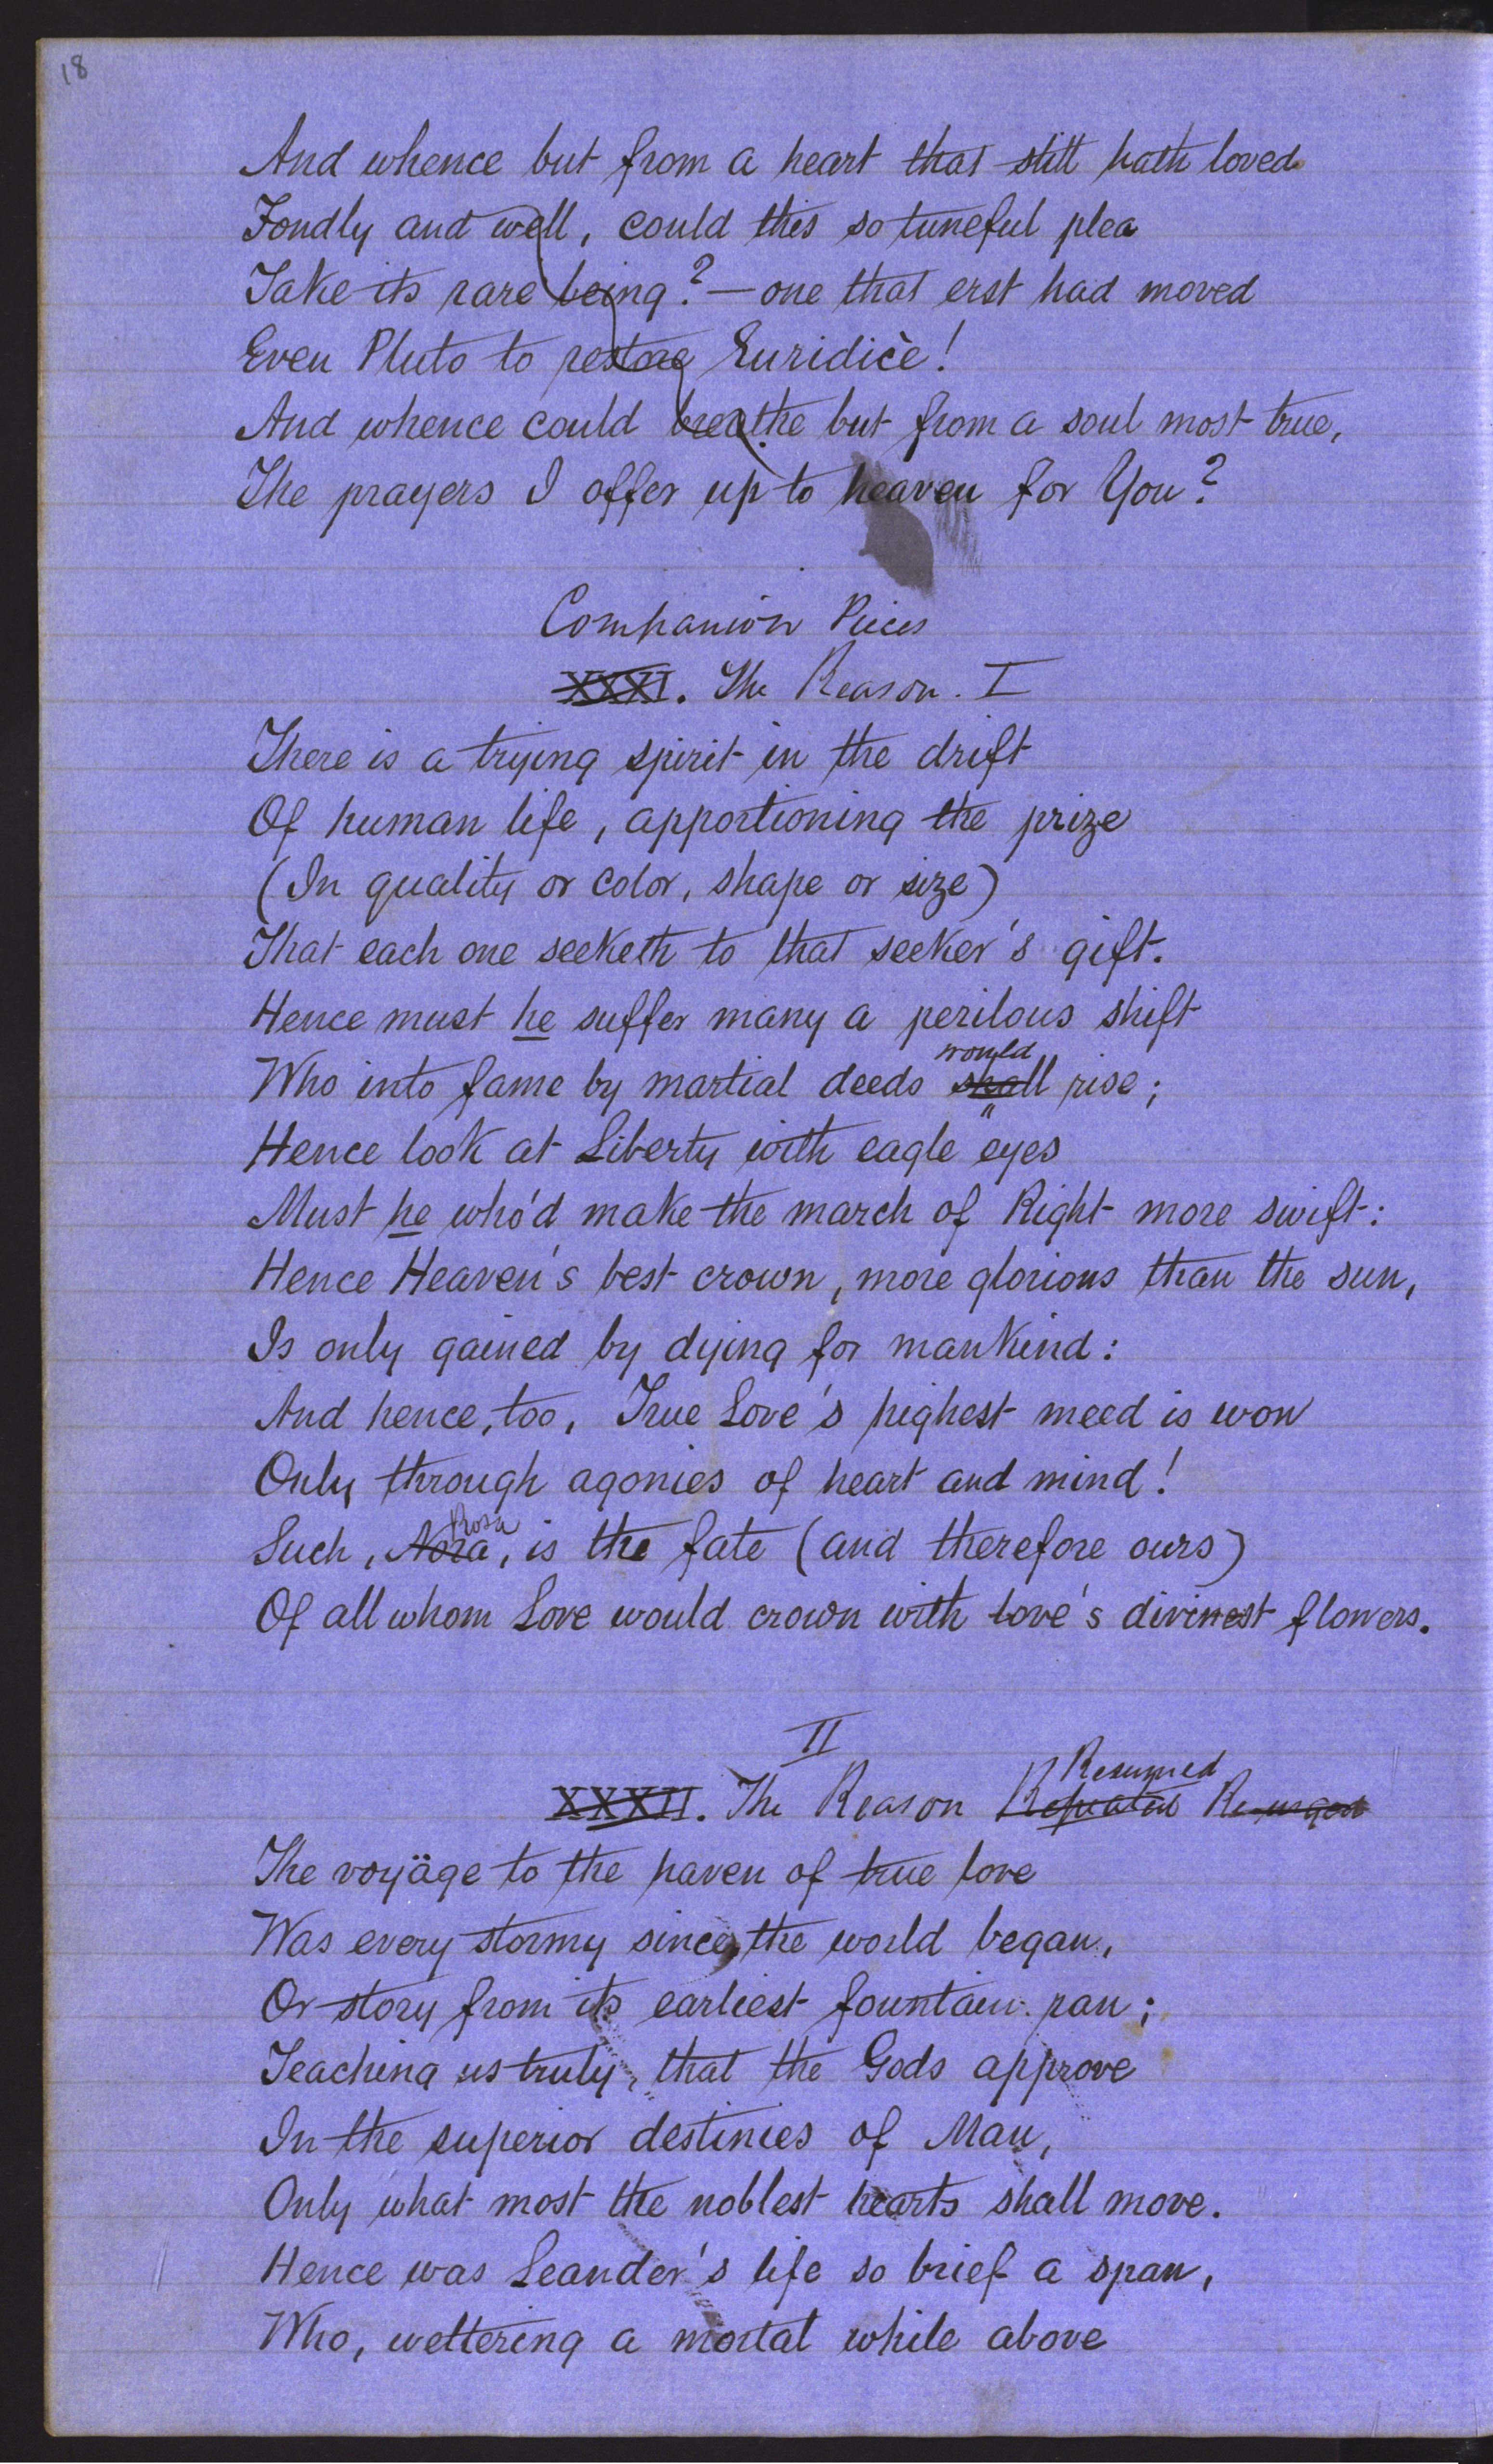 18
And whence but from a heart that still hath loved
Fondly and well, could this so tuneful plea
Take its rare being?—one that erst had moved
Even Pluto to restore Euridicè!
And whence could breathe but from a soul most true,
The prayers I offer up to heaven for You?
Companion Pieces
XXXI. The Reason. I
There is a trying spirit in the drift
Of human life, apportioning the prize
(In quality or color, shape or size)
That each one seeketh to that seeker's gift.
Hence must he suffer many a perilous shift
would
Who into fame by martial deeds shall rise;
Hence look at Liberty with eagle eyes
Must he who'd make the march of Right more swift:
Hence Heaven's best crown, more glorious than the sun,
Is only gained by dying for mankind:
And hence, too, True Love's highest meed is won
Only through agonies of heart and mind!
Rosa
Such, Nora, is the fate (and therefore ours)
Of all whom Love would crown with love's divinest flowers.
II
Resumed
XXXII. The Reason Repeated Re-urged
The voyäge to the haven of true love
Was every stormy since the world began,
Or story from its earliest fountain ran;
Teaching us truly, that the Gods approve
In the superior destinies of Man,
Only what most the noblest hearts shall move.
Hence was Leander's life so brief a span,
Who, weltering a mortal while above